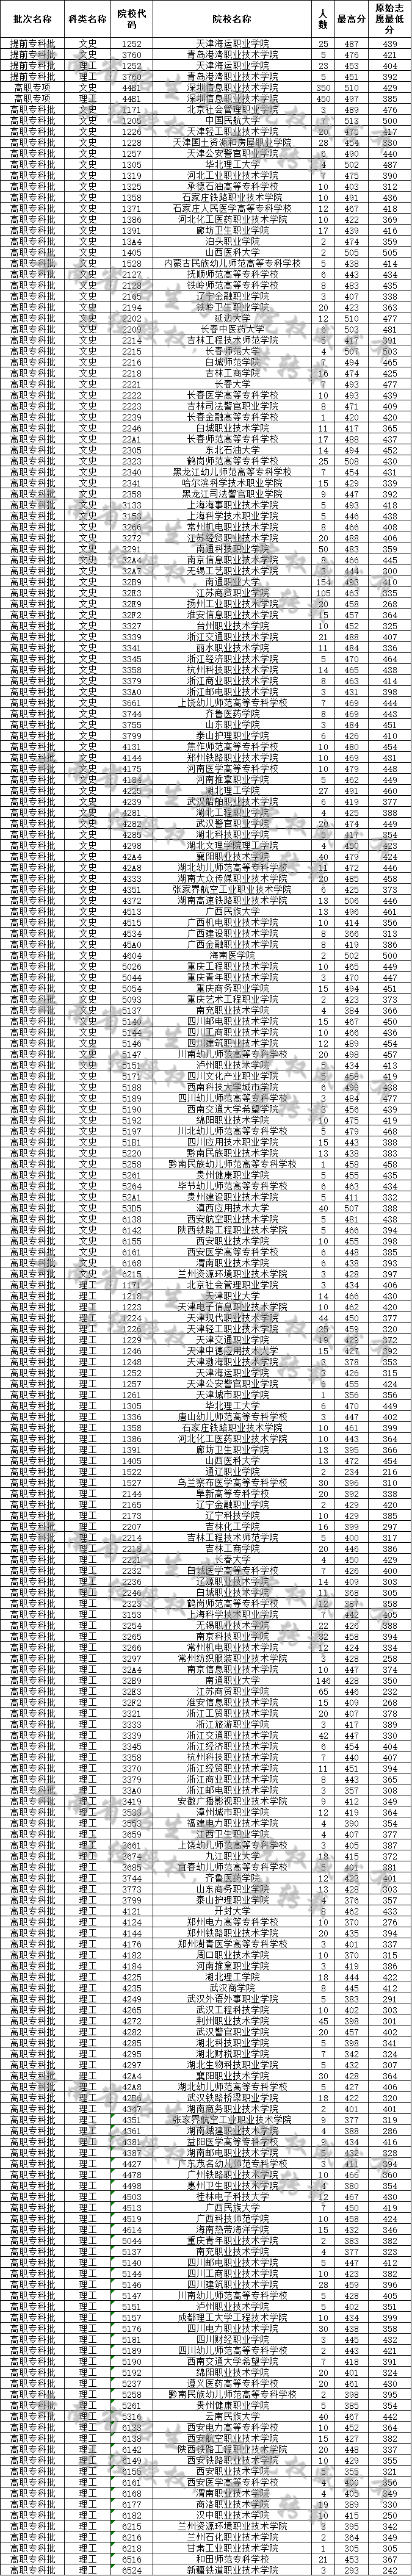 批次名称 科类名称 院校代码 院校名称 人数 最高分 原始志愿最低分
提前专科批 文史 1252 天津海运职业学院 25 487 439
提前专科批 文史 3760 青岛港湾职业技术学院 5 476 421
提前专科批 理工 1252 天津海运职业学院 23 453 404
提前专科批 理工 3760 青岛港湾职业技术学院 5 451 392
高职专项 文史 44B1 深圳信息职业技术学院 350 510 429
高职专项 理工 44B1 深圳信息职业技术学院 450 497 385
高职专科批 文史 1171 北京社会管理职业学院 3 489 476
高职专科批 文史 1205 中国民航大学 7 513 500
高职专科批 文史 1226 天津轻工职业技术学院 20 475 417
高职专科批 文史 1228 天津国土资源和房屋职业学院 28 454 330
高职专科批 文史 1257 天津公安警官职业学院 6 490 440
高职专科批 文史 1305 华北理工大学 4 502 487
高职专科批 文史 1319 河北工业职业技术学院 7 475 390
高职专科批 文史 1325 承德石油高等专科学校 10 403 312
高职专科批 文史 1358 石家庄铁路职业技术学院 10 491 436
高职专科批 文史 1371 石家庄人民医学高等专科学校 12 467 418
高职专科批 文史 1386 河北化工医药职业技术学院 10 422 369
高职专科批 文史 1391 廊坊卫生职业学院 17 439 416
高职专科批 文史 13A4 泊头职业学院 2 474 359
高职专科批 文史 1405 山西医科大学 2 505 505
高职专科批 文史 1528 内蒙古民族幼儿师范高等专科学校 5 438 414
高职专科批 文史 2127 抚顺师范高等专科学校 6 443 434
高职专科批 文史 2128 铁岭师范高等专科学校 8 483 435
高职专科批 文史 2165 辽宁金融职业学院 3 407 338
高职专科批 文史 2194 铁岭卫生职业学院 20 423 363
高职专科批 文史 2202 延边大学 12 510 477
高职专科批 文史 2209 长春中医药大学 6 503 481
高职专科批 文史 2214 吉林工程技术师范学院 5 417 391
高职专科批 文史 2215 长春师范大学 4 507 503
高职专科批 文史 2216 白城师范学院 7 494 465
高职专科批 文史 2218 吉林工商学院 16 474 425
高职专科批 文史 2221 长春大学 7 493 477
高职专科批 文史 2222 长春医学高等专科学校 10 493 439
高职专科批 文史 2223 吉林司法警官职业学院 8 471 409
高职专科批 文史 2239 长春金融高等专科学校 1 420 420
高职专科批 文史 2246 白城职业技术学院 11 417 365
高职专科批 文史 22A1 长春师范高等专科学校 17 488 437
高职专科批 文史 2305 东北石油大学 14 494 452
高职专科批 文史 2323 鹤岗师范高等专科学校 25 508 430
高职专科批 文史 2340 黑龙江幼儿师范高等专科学校 7 454 431
高职专科批 文史 2341 哈尔滨科学技术职业学院 15 429 339
高职专科批 文史 2358 黑龙江司法警官职业学院 9 447 392
高职专科批 文史 3133 上海海事职业技术学院 5 493 418
高职专科批 文史 3153 上海科学技术职业学院 5 446 438
高职专科批 文史 3266 常州机电职业技术学院 8 466 408
高职专科批 文史 3272 江苏经贸职业技术学院 20 488 406
高职专科批 文史 3291 南通科技职业学院 50 483 359
高职专科批 文史 32A4 南京信息职业技术学院 8 466 445
高职专科批 文史 32A7 无锡工艺职业技术学院 3 444 300
高职专科批 文史 32B9 南通职业大学 154 493 410
高职专科批 文史 32E3 江苏商贸职业学院 105 463 335
高职专科批 文史 32E9 扬州工业职业技术学院 20 458 268
高职专科批 文史 32F2 淮安信息职业技术学院 15 457 364
高职专科批 文史 3327 台州职业技术学院 10 452 325
高职专科批 文史 3339 浙江交通职业技术学院 21 488 407
高职专科批 文史 3341 丽水职业技术学院 11 484 336
高职专科批 文史 3345 浙江经济职业技术学院 5 470 464
高职专科批 文史 3358 杭州科技职业技术学院 14 465 438
高职专科批 文史 3379 浙江商业职业技术学院 8 463 414
高职专科批 文史 33A0 浙江邮电职业技术学院 3 431 398
高职专科批 文史 3661 上饶幼儿师范高等专科学校 7 469 444
高职专科批 文史 3744 齐鲁医药学院 8 469 443
高职专科批 文史 3755 山东职业学院 3 484 451
高职专科批 文史 3799 泰山护理职业学院 6 426 410
高职专科批 文史 4131 焦作师范高等专科学校 10 480 454
高职专科批 文史 4144 郑州铁路职业技术学院 10 469 431
高职专科批 文史 4175 河南医学高等专科学校 10 479 448
高职专科批 文史 4184 河南推拿职业学院 5 462 449
高职专科批 文史 4225 湖北理工学院 27 491 460
高职专科批 文史 4239 武汉船舶职业技术学院 6 419 377
高职专科批 文史 4281 湖北工程职业学院 4 425 388
高职专科批 文史 4282 武汉警官职业学院 20 474 449
高职专科批 文史 4285 湖北科技职业学院 5 417 354
高职专科批 文史 4298 湖北文理学院理工学院 4 450 423
高职专科批 文史 42A4 襄阳职业技术学院 40 479 424
高职专科批 文史 42A8 湖北幼儿师范高等专科学校 11 472 446
高职专科批 文史 4333 湖南大众传媒职业技术学院 20 485 458
高职专科批 文史 4351 张家界航空工业职业技术学院 6 425 373
高职专科批 文史 4372 湖南高速铁路职业技术学院 13 506 446
高职专科批 文史 4513 广西民族大学 13 496 461
高职专科批 文史 4515 广西机电职业技术学院 10 414 356
高职专科批 文史 4534 广西建设职业技术学院 8 366 313
高职专科批 文史 45A0 广西金融职业技术学院 8 419 386
高职专科批 文史 4604 海南医学院 2 502 500
高职专科批 文史 5026 重庆工程职业技术学院 10 465 449
高职专科批 文史 5044 重庆青年职业技术学院 3 470 447
高职专科批 文史 5054 重庆商务职业学院 15 494 451
高职专科批 文史 5093 重庆艺术工程职业学院 2 423 373
高职专科批 文史 5137 南充职业技术学院 4 384 366
高职专科批 文史 5140 四川邮电职业技术学院 15 467 450
高职专科批 文史 5144 四川工商职业技术学院 10 466 436
高职专科批 文史 5146 四川建筑职业技术学院 12 489 454
高职专科批 文史 5147 川南幼儿师范高等专科学校 20 498 457
高职专科批 文史 5151 泸州职业技术学院 5 434 413
高职专科批 文史 5171 四川文化产业职业学院 5 458 419
高职专科批 文史 5188 西南科技大学城市学院 6 499 438
高职专科批 文史 5189 四川幼儿师范高等专科学校 3 484 477
高职专科批 文史 5190 西南交通大学希望学院 3 456 439
高职专科批 文史 5192 绵阳职业技术学院 10 475 419
高职专科批 文史 5197 川北幼儿师范高等专科学校 5 479 468
高职专科批 文史 51B1 四川应用技术职业学院 15 443 388
高职专科批 文史 5220 黔南民族职业技术学院 13 438 383
高职专科批 文史 5258 黔南民族幼儿师范高等专科学校 1 458 458
高职专科批 文史 5261 贵州健康职业学院 5 455 435
高职专科批 文史 5264 毕节幼儿师范高等专科学校 6 463 434
高职专科批 文史 52A1 贵州建设职业技术学院 5 411 332
高职专科批 文史 53D5 滇西应用技术大学 40 507 388
高职专科批 文史 6138 西安航空职业技术学院 5 481 438
高职专科批 文史 6142 陕西铁路工程职业技术学院 5 466 394
高职专科批 文史 6155 西安职业技术学院 10 455 398
高职专科批 文史 6161 西安医学高等专科学校 6 448 385
高职专科批 文史 6168 渭南职业技术学院 6 438 393
高职专科批 文史 6215 兰州资源环境职业技术学院 3 428 397
高职专科批 理工 1171 北京社会管理职业学院 3 434 406
高职专科批 理工 1218 天津职业大学 14 466 430
高职专科批 理工 1223 天津电子信息职业技术学院 10 462 420
高职专科批 理工 1224 天津现代职业技术学院 44 450 377
高职专科批 理工 1226 天津轻工职业技术学院 39 459 320
高职专科批 理工 1229 天津交通职业学院 19 429 372
高职专科批 理工 1246 天津中德应用技术大学 15 427 392
高职专科批 理工 1248 天津渤海职业技术学院 3 378 353
高职专科批 理工 1252 天津海运职业学院 3 426 315
高职专科批 理工 1257 天津公安警官职业学院 6 455 424
高职专科批 理工 1261 天津城市职业学院 1 356 356
高职专科批 理工 1305 华北理工大学 6 470 449
高职专科批 理工 1336 唐山幼儿师范高等专科学校 3 447 402
高职专科批 理工 1358 石家庄铁路职业技术学院 10 461 399
高职专科批 理工 1386 河北化工医药职业技术学院 10 443 364
高职专科批 理工 1391 廊坊卫生职业学院 13 395 366
高职专科批 理工 1405 山西医科大学 13 472 454
高职专科批 理工 1522 通辽职业学院 2 234 216
高职专科批 理工 1527 乌兰察布医学高等专科学校 30 396 310
高职专科批 理工 2144 阜新高等专科学校 20 392 338
高职专科批 理工 2165 辽宁金融职业学院 2 429 420
高职专科批 理工 2173 辽宁科技学院 10 429 385
高职专科批 理工 2207 吉林化工学院 16 399 297
高职专科批 理工 2214 吉林工程技术师范学院 5 400 317
高职专科批 理工 2218 吉林工商学院 20 446 386
高职专科批 理工 2221 长春大学 4 450 429
高职专科批 理工 2232 白城医学高等专科学校 7 426 400
高职专科批 理工 2236 辽源职业技术学院 14 409 303
高职专科批 理工 2246 白城职业技术学院 11 368 305
高职专科批 理工 2323 鹤岗师范高等专科学校 12 387 358
高职专科批 理工 3153 上海科学技术职业学院 7 442 405
高职专科批 理工 3254 无锡职业技术学院 22 426 388
高职专科批 理工 3265 南京科技职业学院 32 458 394
高职专科批 理工 3266 常州机电职业技术学院 12 424 334
高职专科批 理工 3297 常州纺织服装职业技术学院 3 428 258
高职专科批 理工 32A4 南京信息职业技术学院 10 447 374
高职专科批 理工 32B9 南通职业大学 146 428 350
高职专科批 理工 32E3 江苏商贸职业学院 65 446 232
高职专科批 理工 32F2 淮安信息职业技术学院 15 409 268
高职专科批 理工 3321 浙江工贸职业技术学院 20 407 378
高职专科批 理工 3333 浙江旅游职业学院 3 417 389
高职专科批 理工 3339 浙江交通职业技术学院 42 447 330
高职专科批 理工 3345 浙江经济职业技术学院 6 454 404
高职专科批 理工 3358 杭州科技职业技术学院 7 440 407
高职专科批 理工 3370 浙江经贸职业技术学院 11 451 394
高职专科批 理工 3379 浙江商业职业技术学院 8 443 365
高职专科批 理工 33A0 浙江邮电职业技术学院 3 357 308
高职专科批 理工 3419 安徽广播影视职业技术学院 9 412 349
高职专科批 理工 3533 漳州城市职业学院 12 419 364
高职专科批 理工 3553 福建电力职业技术学院 4 390 354
高职专科批 理工 3659 江西卫生职业学院 4 407 377
高职专科批 理工 3661 上饶幼儿师范高等专科学校 3 405 387
高职专科批 理工 3674 九江职业大学 18 415 372
高职专科批 理工 3685 宜春幼儿师范高等专科学校 5 401 381
高职专科批 理工 3744 齐鲁医药学院 12 423 401
高职专科批 理工 3773 山东商务职业学院 13 428 303
高职专科批 理工 3799 泰山护理职业学院 4 376 357
高职专科批 理工 4121 开封大学 8 462 433
高职专科批 理工 4124 郑州电力高等专科学校 10 370 276
高职专科批 理工 4144 郑州铁路职业技术学院 20 435 394
高职专科批 理工 4176 郑州澍青医学高等专科学校 3 401 337
高职专科批 理工 4182 周口职业技术学院 10 370 315
高职专科批 理工 4184 河南推拿职业学院 3 419 386
高职专科批 理工 4225 湖北理工学院 18 444 422
高职专科批 理工 4235 武汉商学院 8 445 412
高职专科批 理工 4249 武汉外语外事职业学院 5 383 291
高职专科批 理工 4265 武汉工程科技学院 10 402 303
高职专科批 理工 4272 荆州职业技术学院 45 398 301
高职专科批 理工 4282 武汉警官职业学院 20 457 402
高职专科批 理工 4285 湖北科技职业学院 5 398 341
高职专科批 理工 4295 湖北财税职业学院 7 342 324
高职专科批 理工 4297 湖北生物科技职业学院 5 432 307
高职专科批 理工 42A4 襄阳职业技术学院 30 428 364
高职专科批 理工 42A8 湖北幼儿师范高等专科学校 5 427 406
高职专科批 理工 42B6 武汉铁路桥梁职业学院 18 422 320
高职专科批 理工 4347 湖南商务职业技术学院 2 401 401
高职专科批 理工 4351 张家界航空工业职业技术学院 9 377 319
高职专科批 理工 4361 湖南城建职业技术学院 4 388 286
高职专科批 理工 4381 益阳医学高等专科学校 9 434 416
高职专科批 理工 4387 湖南邮电职业技术学院 5 432 328
高职专科批 理工 4427 广东茂名幼儿师范专科学校 3 411 394
高职专科批 理工 4478 广州铁路职业技术学院 10 466 360
高职专科批 理工 4498 惠州卫生职业技术学院 4 380 354
高职专科批 理工 4503 桂林电子科技大学 12 467 430
高职专科批 理工 4513 广西民族大学 7 450 419
高职专科批 理工 4519 广西科技师范学院 10 458 424
高职专科批 理工 4614 海南热带海洋学院 15 432 346
高职专科批 理工 5044 重庆青年职业技术学院 2 383 382
高职专科批 理工 5137 南充职业技术学院 4 377 323
高职专科批 理工 5140 四川邮电职业技术学院 5 447 412
高职专科批 理工 5144 四川工商职业技术学院 10 423 382
高职专科批 理工 5146 四川建筑职业技术学院 28 459 396
高职专科批 理工 5147 川南幼儿师范高等专科学校 5 428 405
高职专科批 理工 5151 泸州职业技术学院 5 402 351
高职专科批 理工 5157 成都理工大学工程技术学院 10 434 399
高职专科批 理工 5176 四川电力职业技术学院 30 438 358
高职专科批 理工 5181 四川财经职业学院 3 445 432
高职专科批 理工 5189 四川幼儿师范高等专科学校 2 443 421
高职专科批 理工 5190 西南交通大学希望学院 7 418 391
高职专科批 理工 5192 绵阳职业技术学院 20 401 324
高职专科批 理工 5237 遵义医药高等专科学校 20 461 430
高职专科批 理工 5258 黔南民族幼儿师范高等专科学校 2 398 395
高职专科批 理工 5261 贵州健康职业学院 5 385 354
高职专科批 理工 5316 云南民族大学 40 467 442
高职专科批 理工 6133 西安电力高等专科学校 10 452 364
高职专科批 理工 6138 西安航空职业技术学院 15 427 382
高职专科批 理工 6142 陕西铁路工程职业技术学院 20 448 337
高职专科批 理工 6149 西安铁路职业技术学院 10 429 355
高职专科批 理工 6155 西安职业技术学院 5 355 321
高职专科批 理工 6161 西安医学高等专科学校 4 400 356
高职专科批 理工 6168 渭南职业技术学院 4 405 349
高职专科批 理工 6177 商洛职业技术学院 19 389 330
高职专科批 理工 6182 汉中职业技术学院 10 415 250
高职专科批 理工 6215 兰州资源环境职业技术学院 3 395 342
高职专科批 理工 6216 兰州石化职业技术学院 2 364 349
高职专科批 理工 6218 甘肃工业职业技术学院 1 305 305
高职专科批 理工 6516 和田师范专科学校 21 453 367
高职专科批 理工 6524 新疆铁道职业技术学院 3 293 242